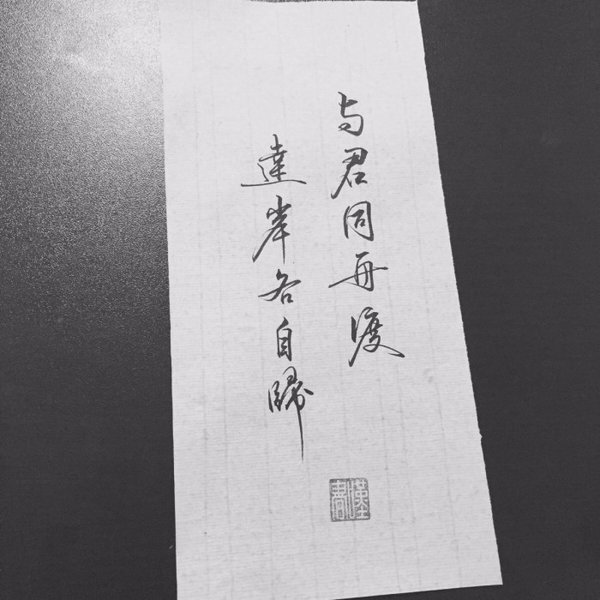 与君同舟渡
達岸各自歸